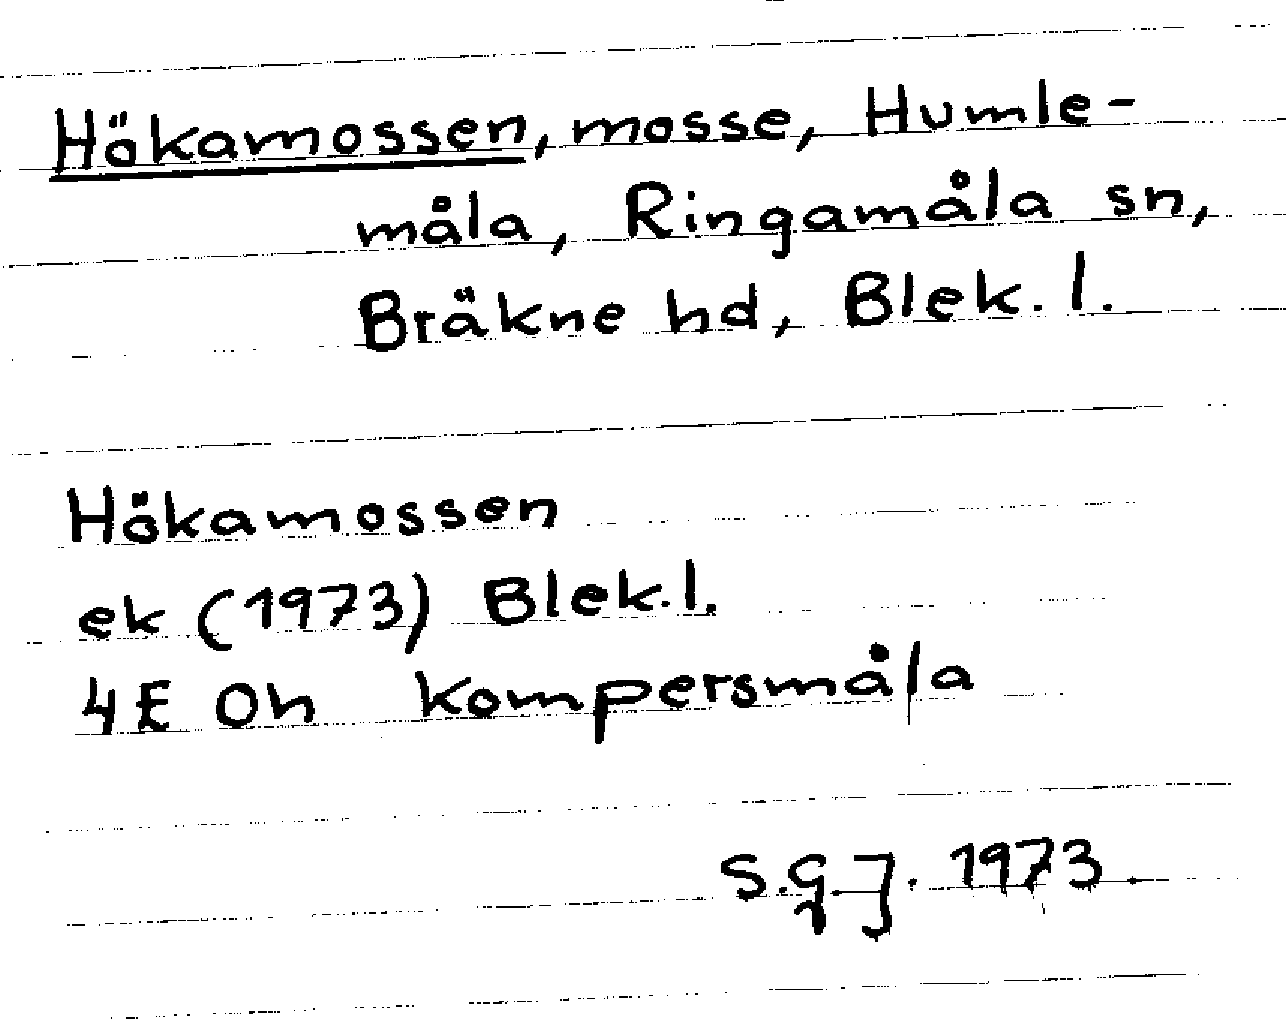 Hökamossen, mosse, Humle-
måla, Ringamåla sn,
Bräkne hd, Blek. l.
Hökamossen
ek (1973) Blek. l.
4E 0h Kompersmåla
S.G.J. 1973.